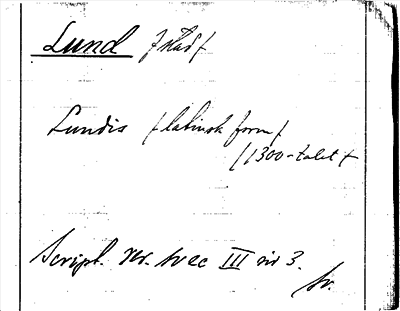 Lund /stad/
Lundis /latinsk form/
/1300-talet/
Script. rer. svec III nr 3.